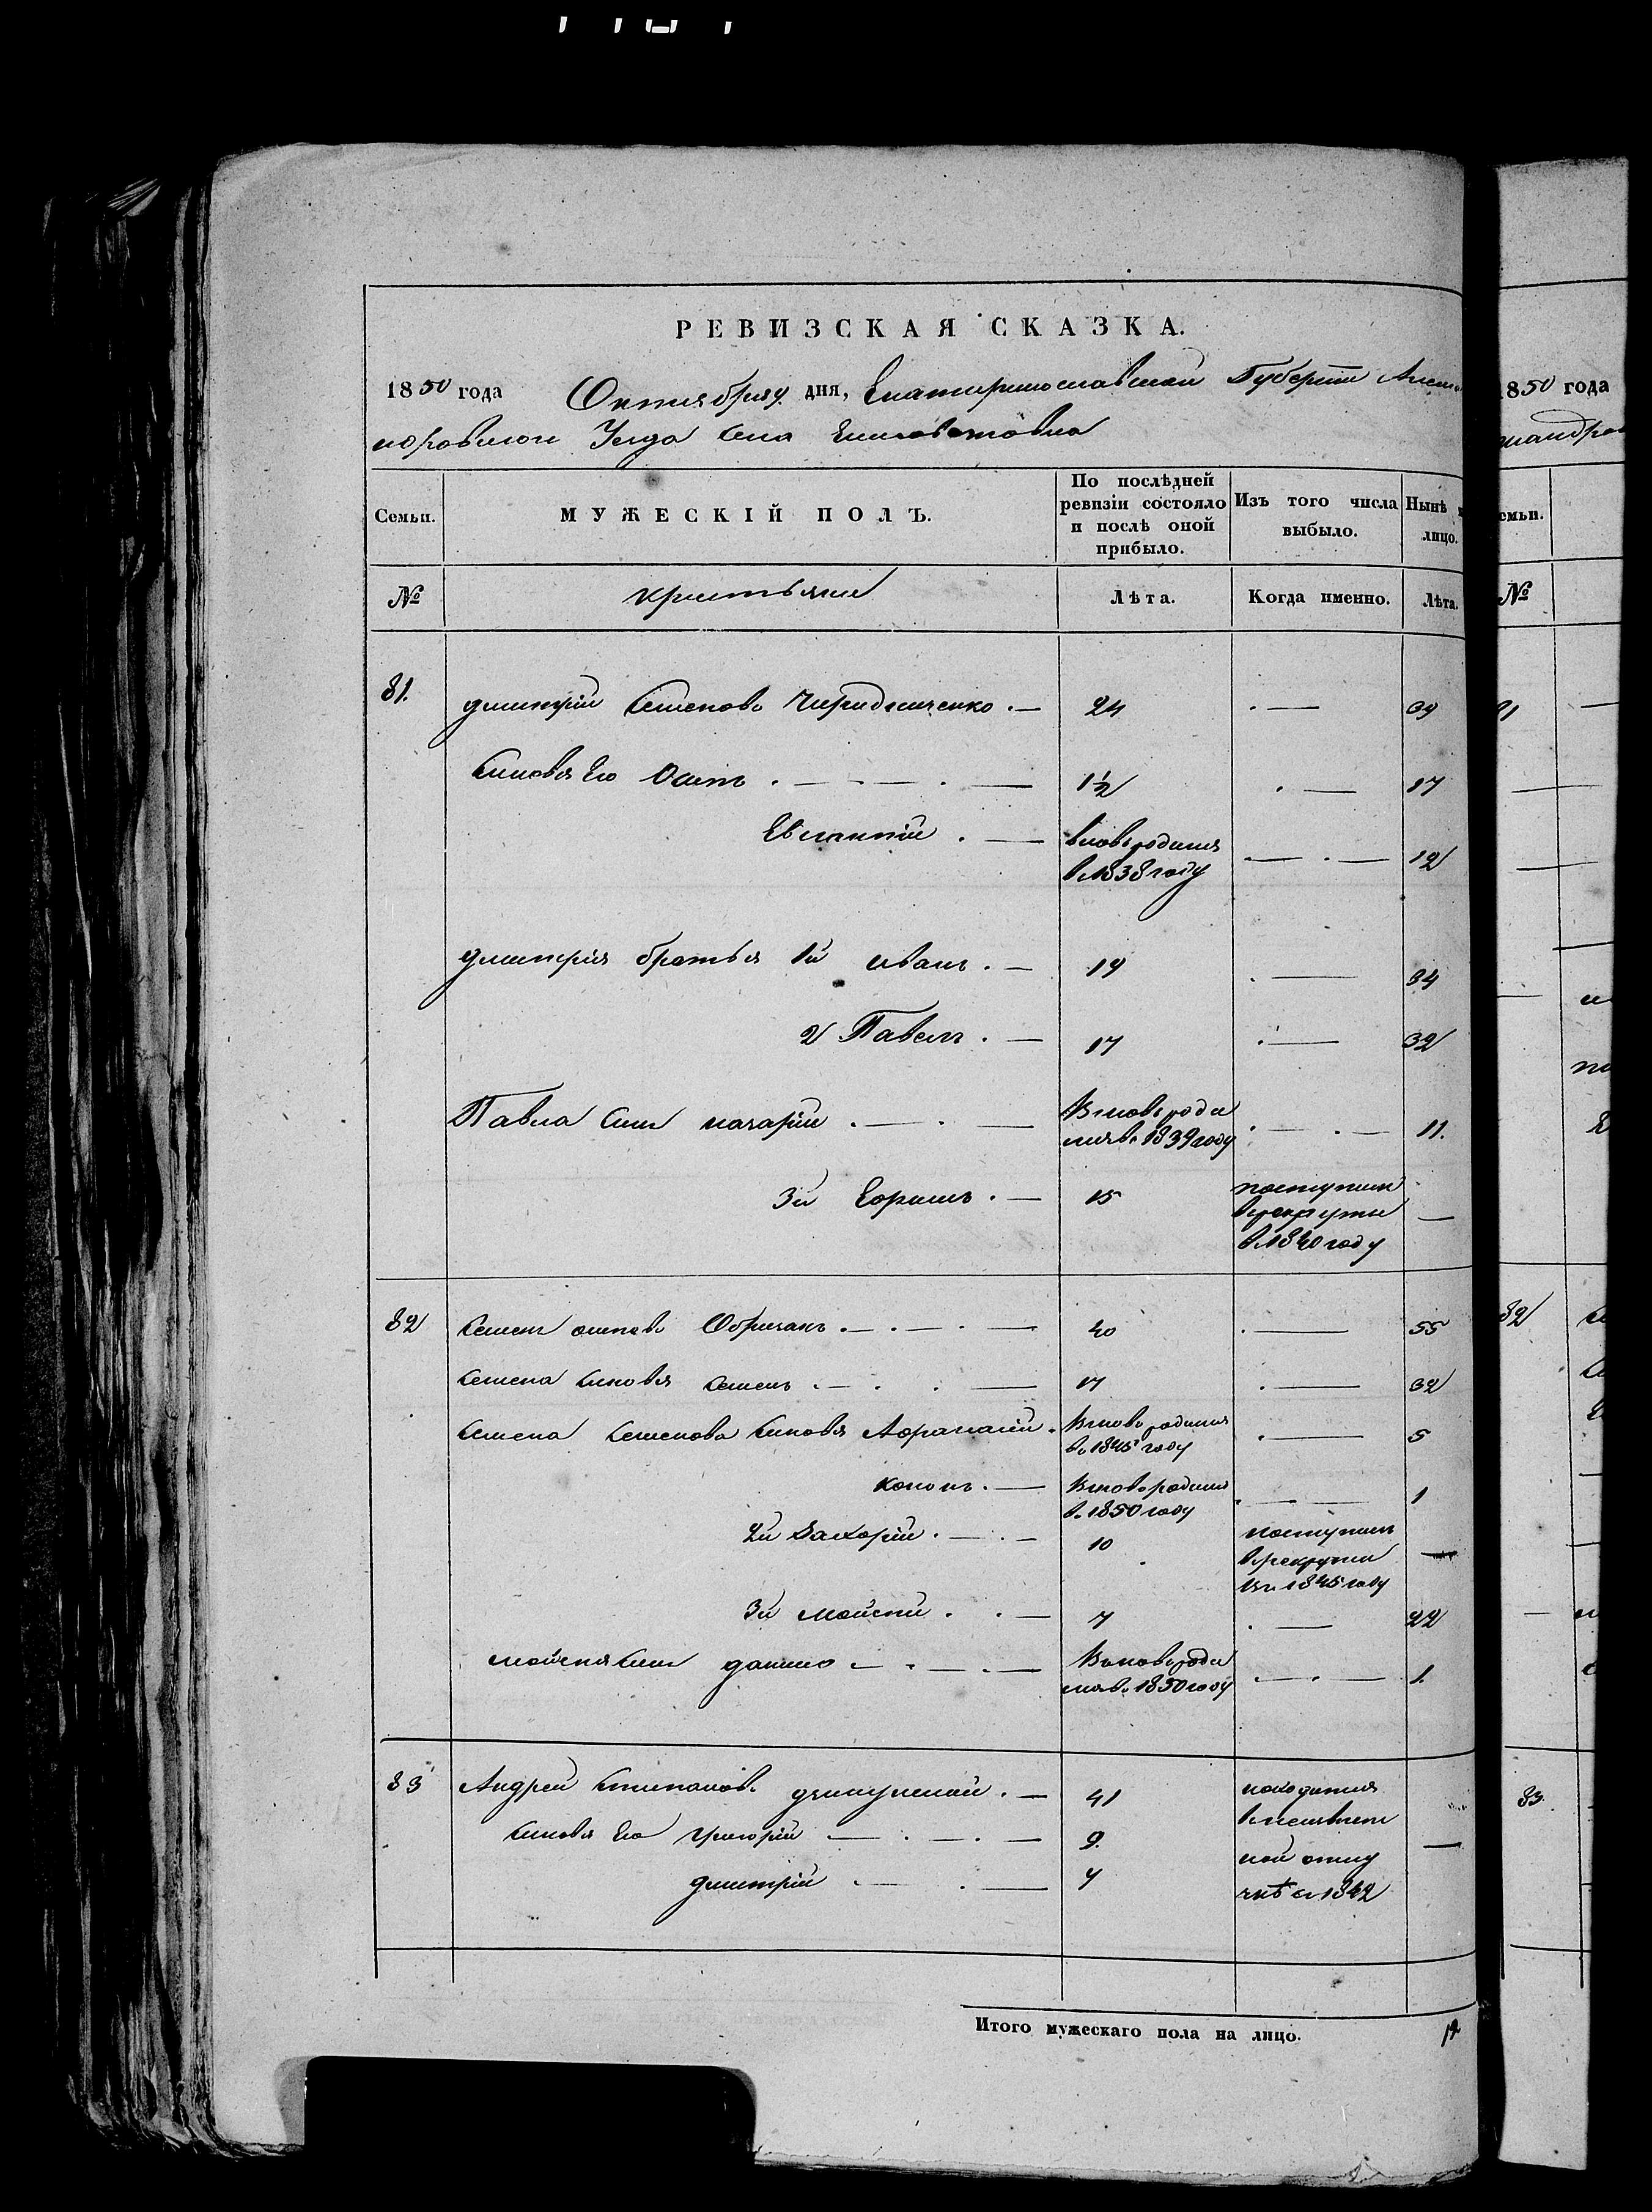 РЕВИЗСКАЯ СКАЗКА.
1850 года Октября дня, Екатеринославской Губернии
Уезда села Елисаветовка
Семьи. МУЖЕСКІЙ ПОЛЪ. По послѣдней ревизіи состояло и послѣ оной прибыло. Изъ того числа выбыло. Нынѣ лицо.
№ крестьяне Лѣта. Когда именно. Лѣта.
81. дмитрій Семеновъ 24 39
Сыновья Его Осипъ 1½ 17
вновьродился в 1838 году 12
дмитрія братья 1й иванъ 19 34
2 Павелъ 17 32
Павла Сынъ назарій Вновь родился въ 1839 году 11.
3й 15 поступилъ в рекруты в 1840 году —
82 Семенъ осиповъ 40 55
Семена Сыновья Семенъ 17 32
Семена Семенова Сыновья Афанасій Вновь родился въ 1845 году 5
кононъ Вновь родился въ 1850 году 1
2й Захарій 10 поступилъ в рекруты въ 1845 году —
3й мойсей 7 22
мойсея Сынъ данило Вновь родился въ 1850 году 1.
83 Андрей Степановъ 41 находится
Сыновья Его григорій 9. —
дмитрій 4 1842
Итого мужескаго пола на лицо. 12
1850 года
81
№
82
83.